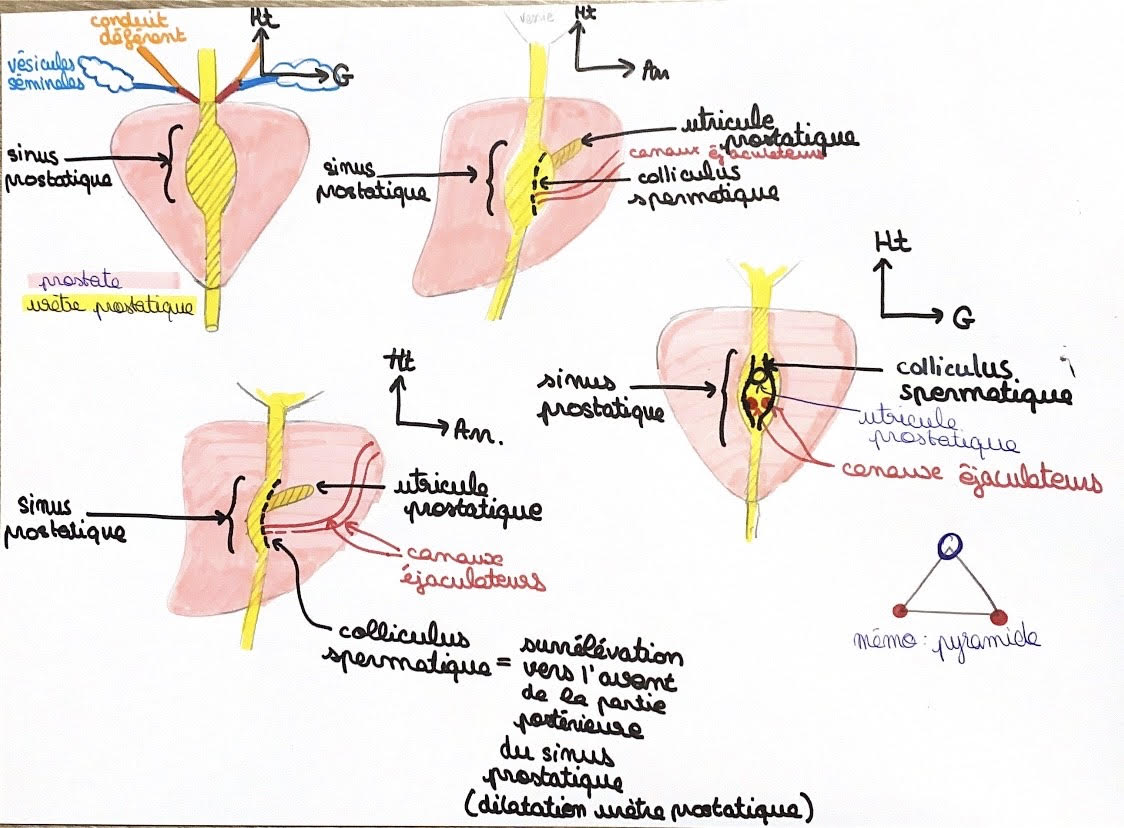 conduit
déférent
vésicules
séminales
Ht
G
sinus
prostatique
prostate
urètre prostatique
vessie
Ht
An
utricule
prostatique
canaux éjaculateurs
colliculus
spermatique
sinus
prostatique
Ht
G
sinus
prostatique
colliculus
spermatique
utricule
prostatique
canaux éjaculateurs
Ht
An.
sinus
prostatique
utricule
prostatique
canaux
éjaculateurs
colliculus
spermatique = surrélévation
vers l'avant
de la partie
postérieure
du sinus
prostatique
(dilatation urètre prostatique)
mémo : pyramide